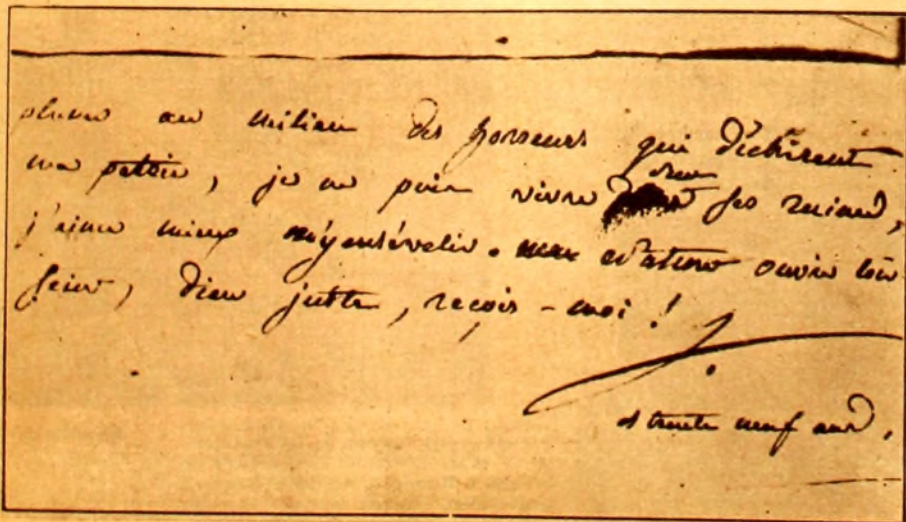 plume au milieu des horreurs qui déchirent
sur
ma patrie, je ne puis vivre ses ruines,
j'aime mieux m'y ensévelir. nature ouvre ton
sein, dieu juste, reçois-moi !
à trente neuf ans.